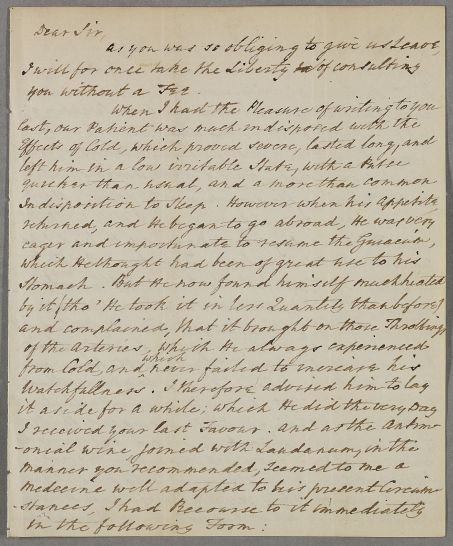 Dear Sir,
as you was so obliging to give us Leave,
I will for once take the Liberty of consulting
you without a Fee.
When I had the Pleasure of writing to you
last, our Patient was much indisposed with the
Effects of Cold, which proved severe, lasted long, and
left him in a low irritable State, with a Pulse
quicker than usual, and a more than common
Indisposition to Sleep. However when his Appetite
returned, and He began to go abroad, He was very
eager and importunate to resume the Guiacum,
which He thought had been of great use to his
Stomach. But He now found himself much heated
by it (tho' He took it in less Quantity than before)
and complained, that it brought on those Throbbings
of the Arteries, which He always experienced
from Cold, and which never failed to increase his
Watchfullness. I therefore advised him to lay
it aside for a while; which He did the very Day
I received your last Favour. And as the Antim-
-onial wine, joined with Laudanum, in the
manner you recommended, seemed to me a
Medecine well adapted to his present Circum-
-stances, I had Recourse to it immediately
in the following Form: